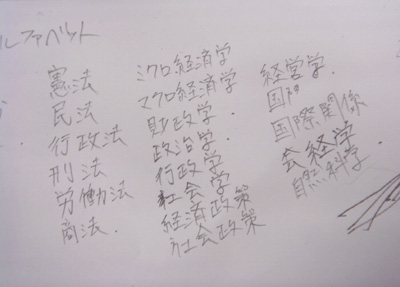 ルファベット
憲法
民法
行政法
刑法
労働法
商法.
ミクロ経済学
マクロ経済学
財政学.
政治学.
行政学
社会学
経済政策
社会政策
経営学.
国
国際関係
会経学.
自然科学.